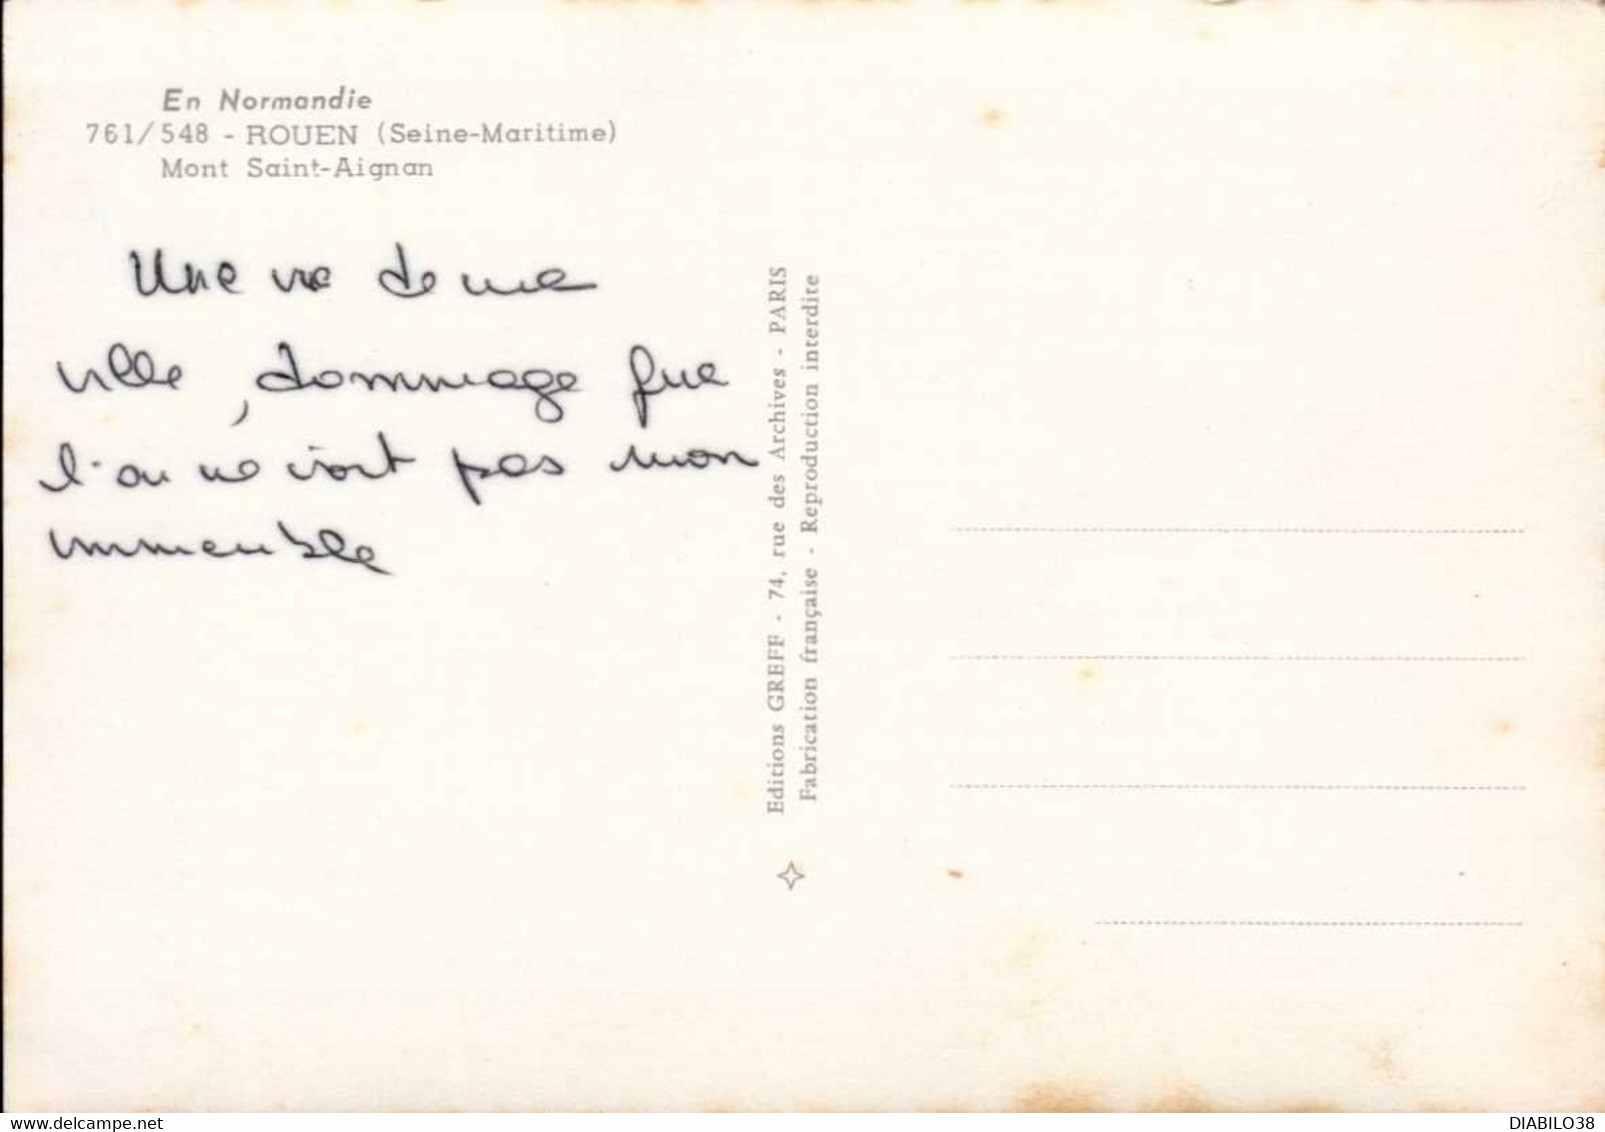 En Normandie
761/548 - ROUEN (Seine-Maritime)
Mont Saint-Aignan
Une vue de ma
ville, dommage que
l'on ne voit pas mon
immeuble
Editions GREFF - 74, rue des Archives - PARIS
Fabrication française - Reproduction interdite
https://www.delcampe.net
DIABILO38